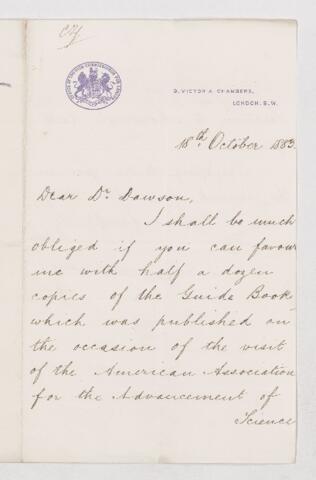 9, VICTORIA CHAMBERS,
LONDON. S.W.
18th October 1883.
Dear Dr. Dawson,
I shall be much
obliged if you can favour
me with half a dozen
copies of the Guide Book
which was published on
the occasion of the visit
of the American Association
for the Advancement of
Science